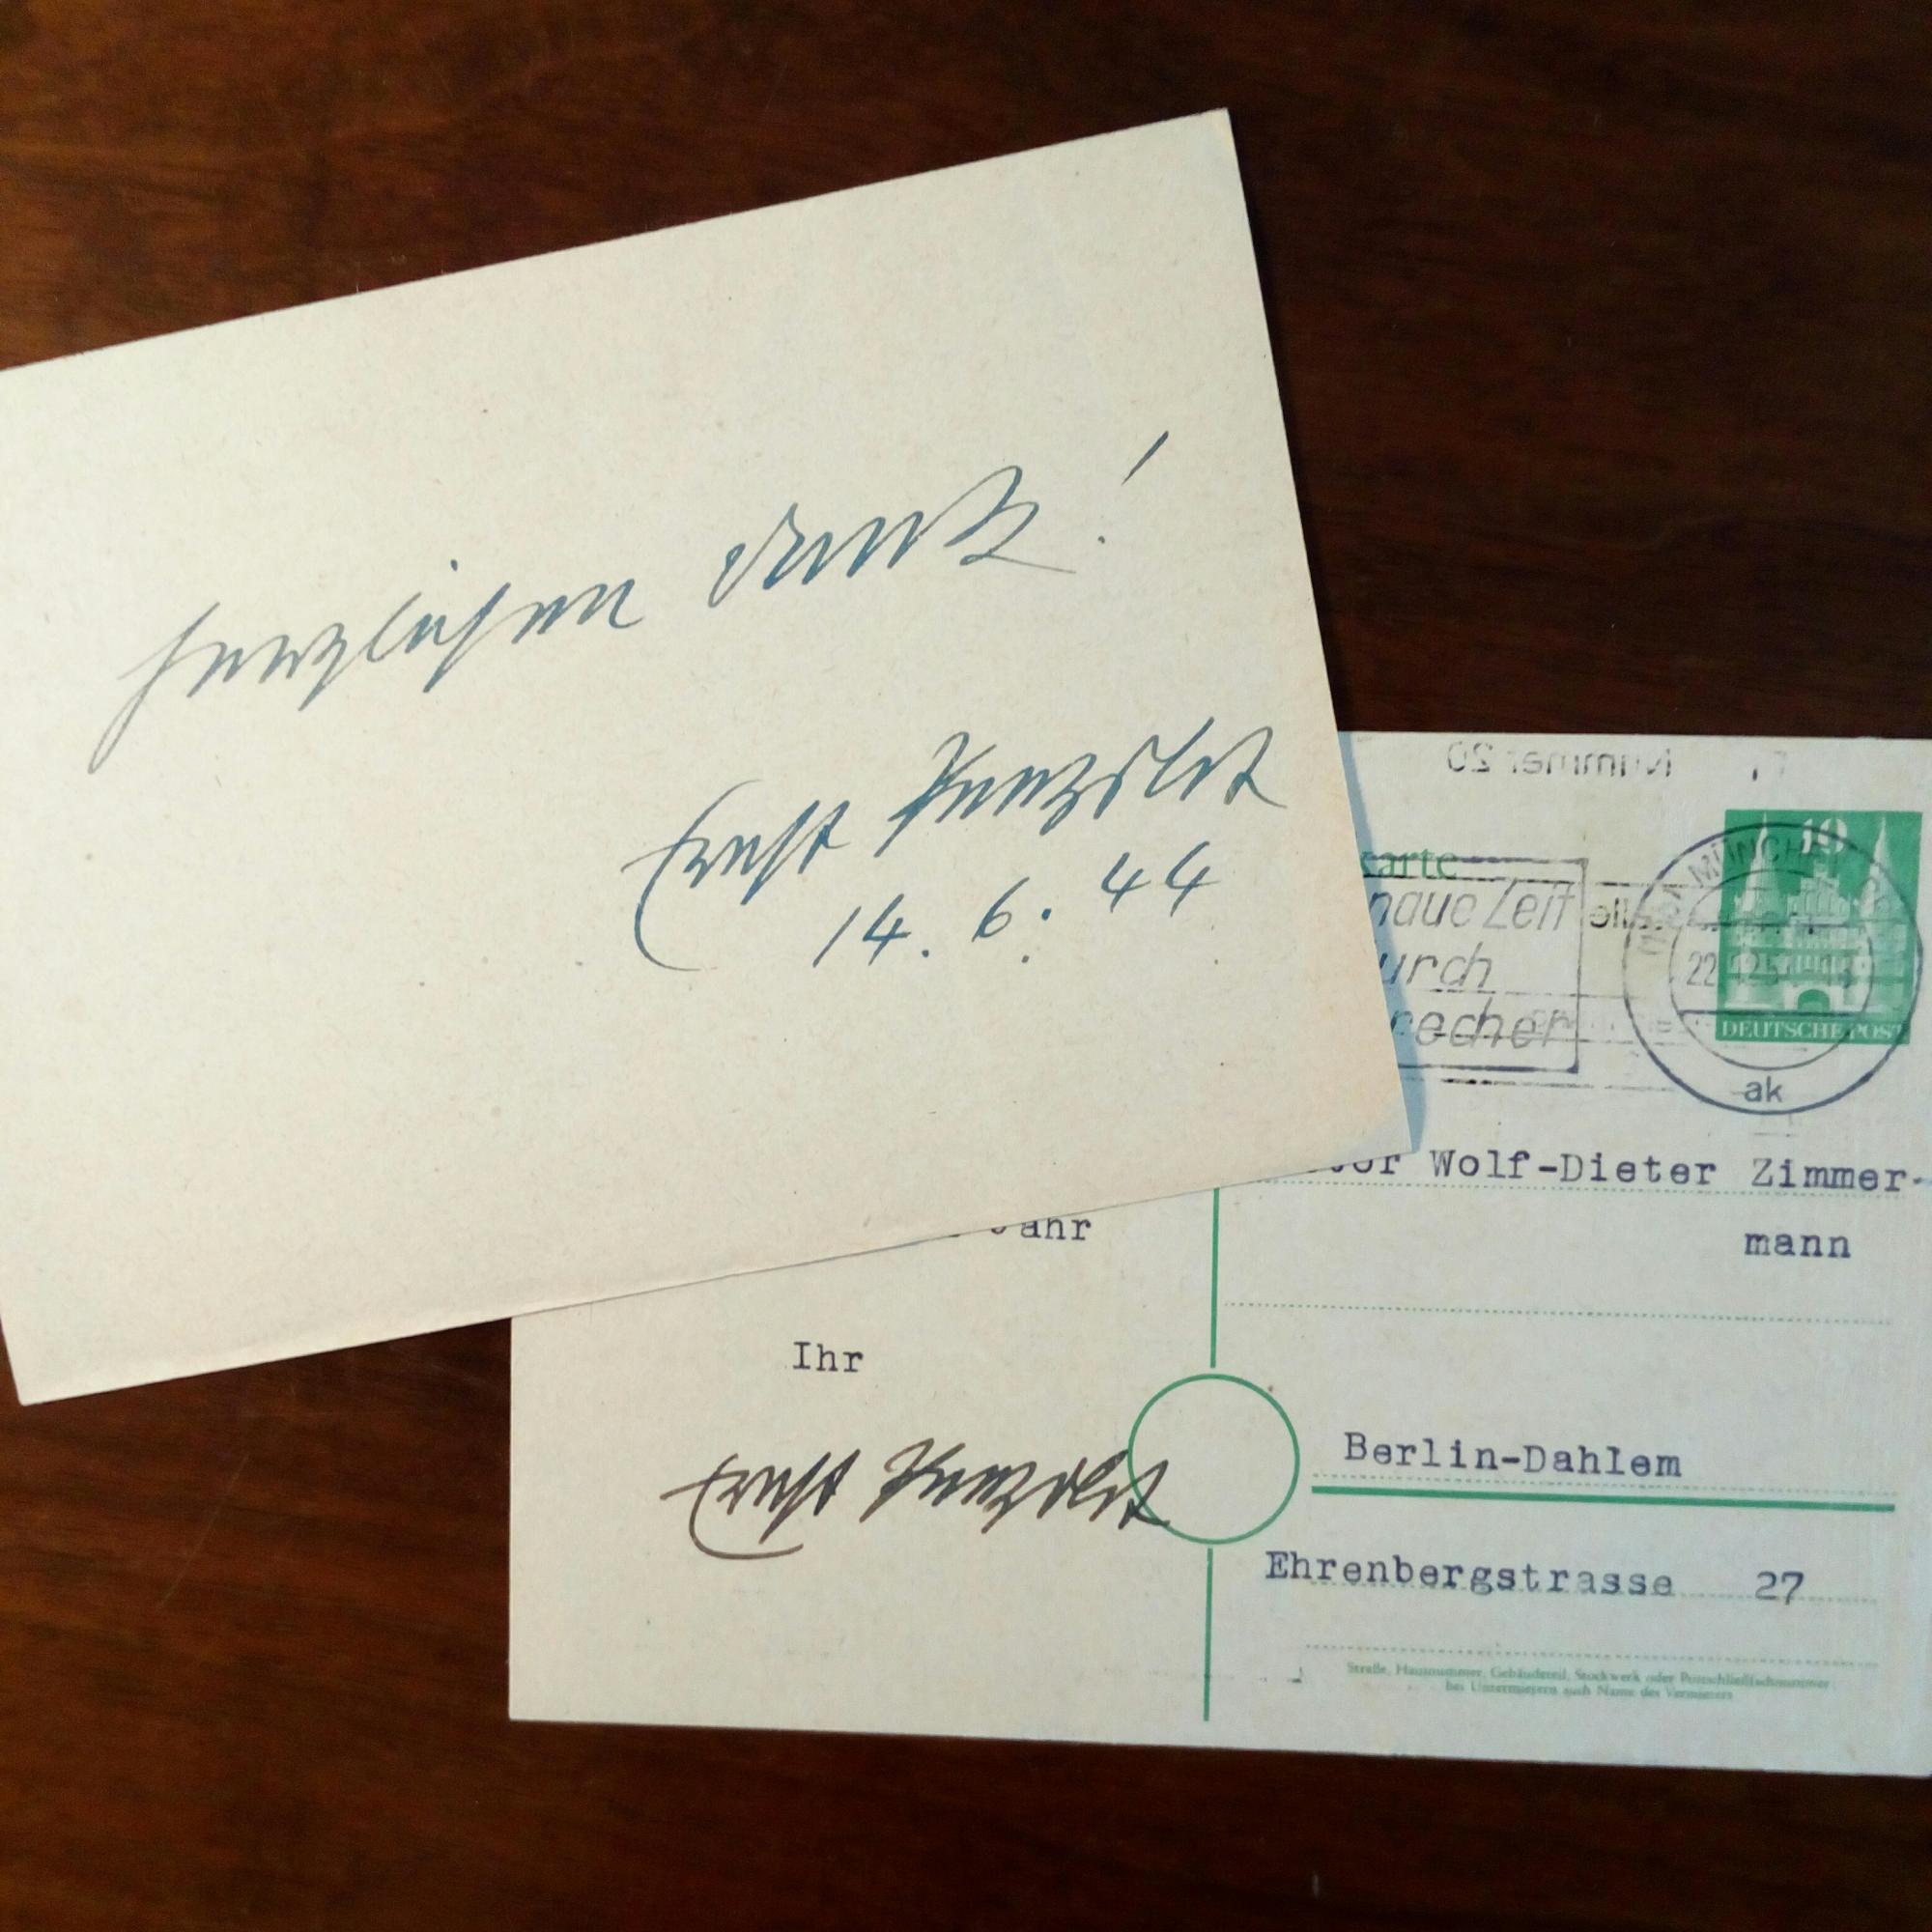 herzlichen Dank!
Ernst Penzoldt
14. 6. 44
Nummer 20
karte
naue Zeit
urch
recher
MÜNCHEN
10
22
DEUTSCHE POST
ak
tor Wolf-Dieter Zimmer-
mann
Jahr
Ihr
Ernst Penzoldt
Berlin-Dahlem
Ehrenbergstrasse 27
Straße, Hausnummer, Gebäudeteil, Stockwerk oder Postschließfachnummer
bei Untermietern auch Name des Vermieters